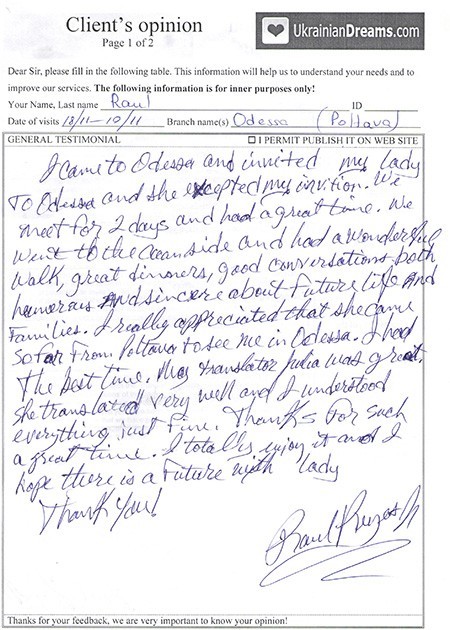 Client's opinion
Page 1 of 2
UkrainianDreams.com
Dear Sir, please fill in the following table. This information will help us to understand your needs and to
improve our services. The following information is for inner purposes only!
Your Name, Last name Raul ID
Date of visits 18/11-19/11 Branch name(s) Odessa (Poltava)
GENERAL TESTIMONIAL ☐ I PERMIT PUBLISH IT ON WEB SITE
I came to Odessa and invited my lady
To Odessa and she excepted my invition. We
meet for 2 days and had a great time. We
went to the Oceanside and had a wonderful
walk, great dinners, good conversations both
humorus and sincere about future life and
Families. I really appreciated that she came
So far From Poltava to see me in Odessa. I had
The best time. My translator Julia was great.
she translated very well and I understood
everything just Fine. Thanks For such
a great time. I totally enjoy it and I
hope there is a Future with lady
Thank You!
Raul
Thanks for your feedback, we are very important to know your opinion!